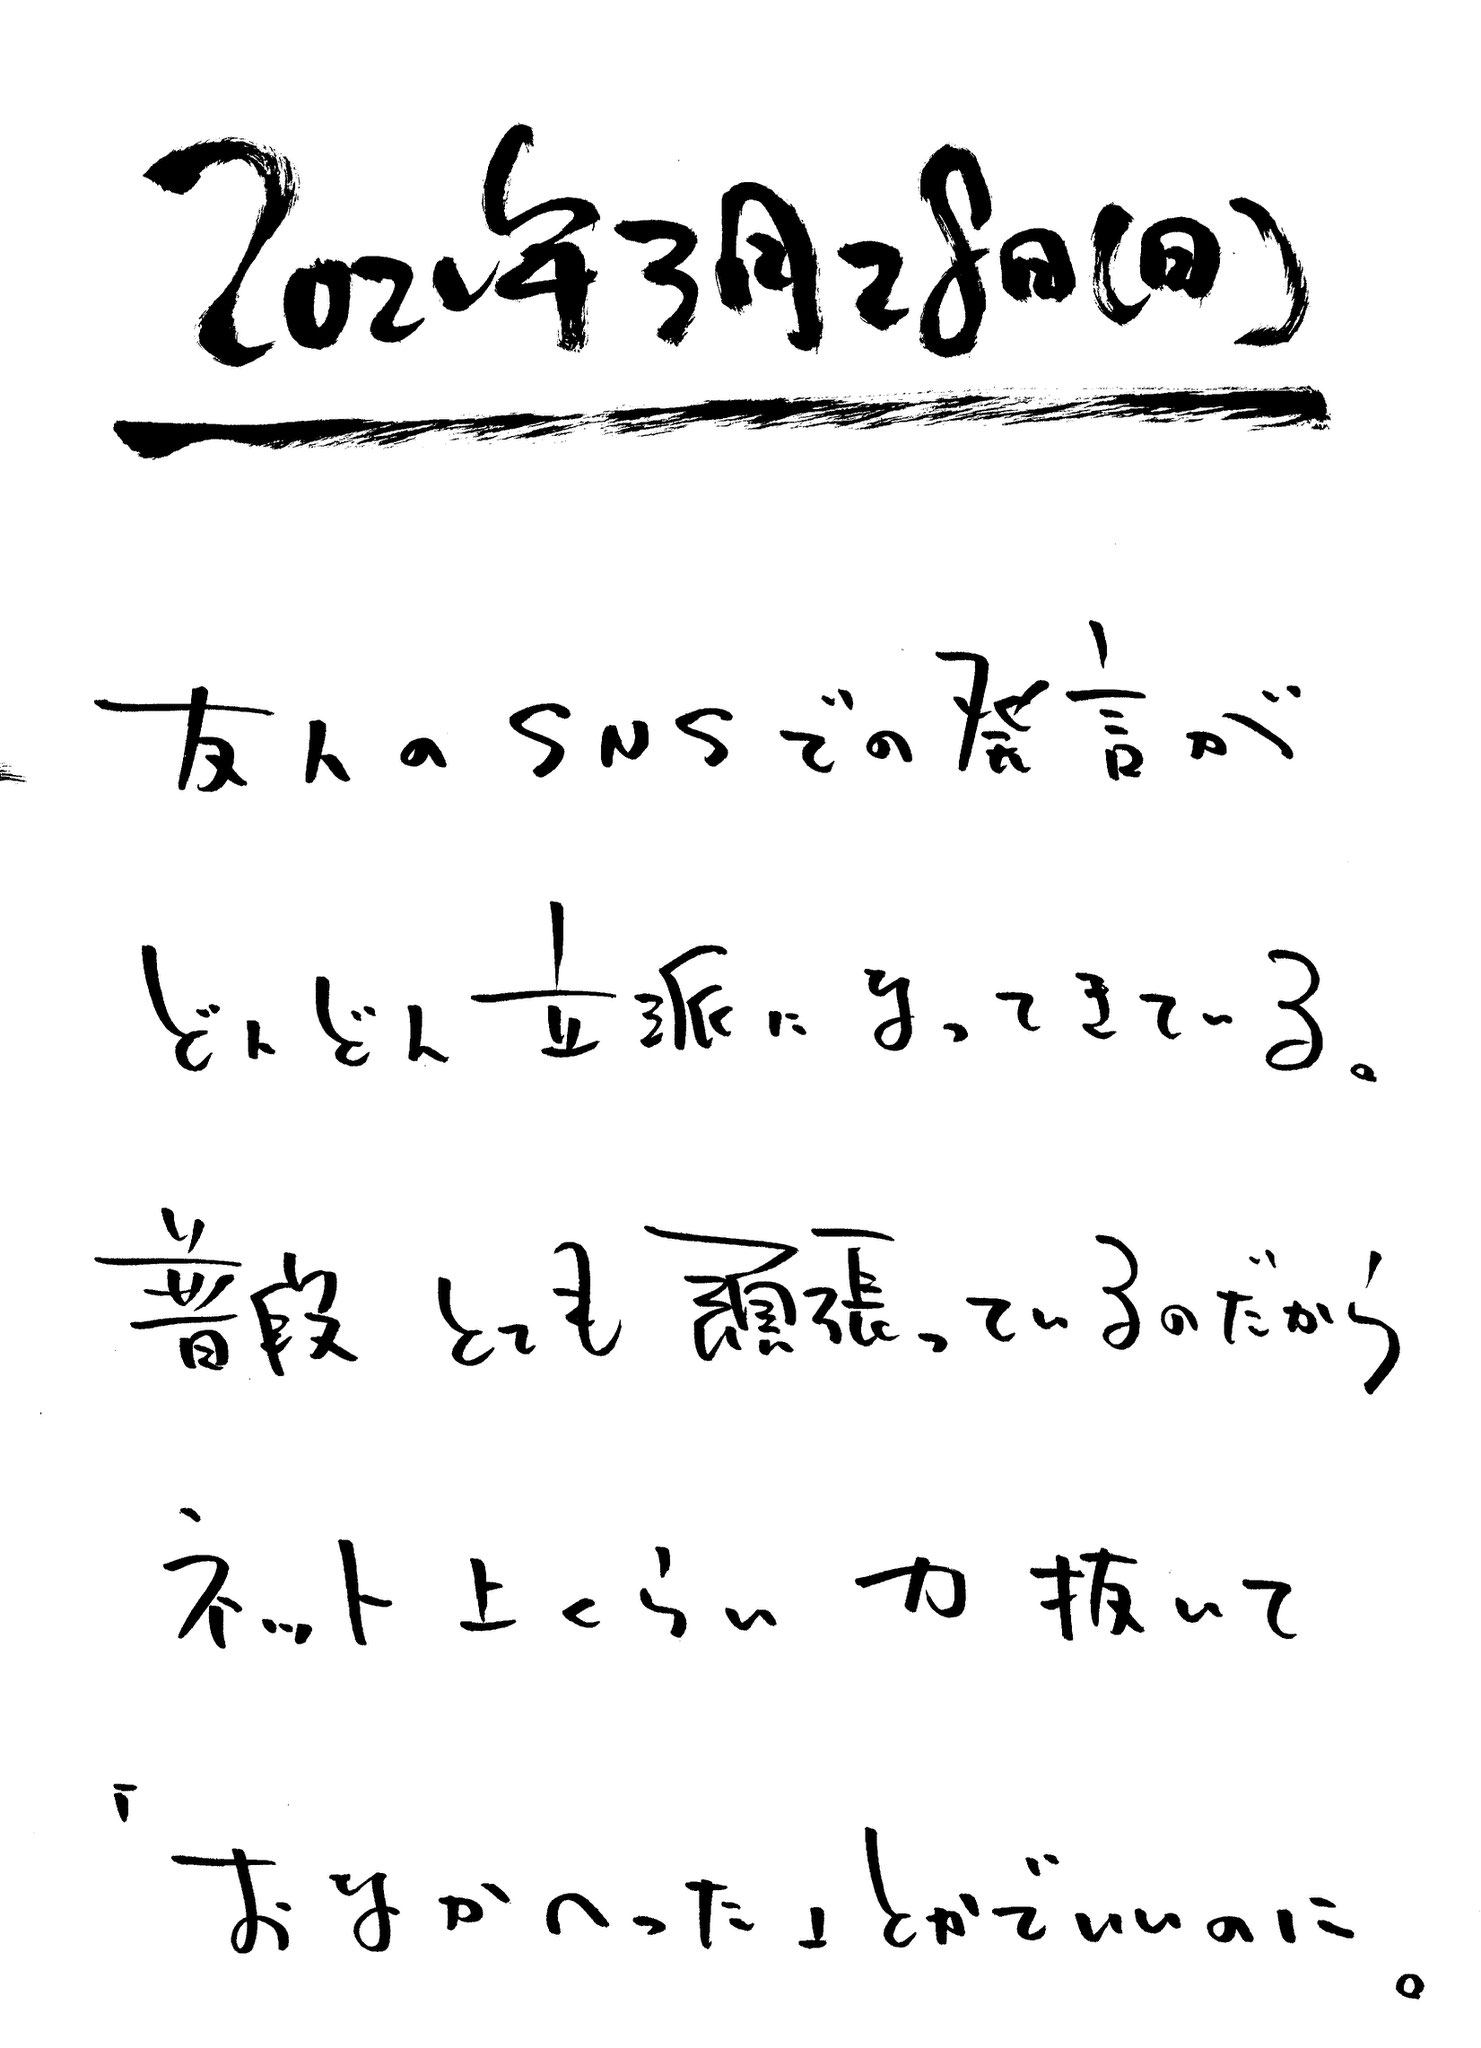 2021年3月28日(日)
友人のSNSでの発言が
どんどん立派になってきている。
普段とても頑張っているのだから
ネット上くらい力抜いて
「おなかへった」とかでいいのに。